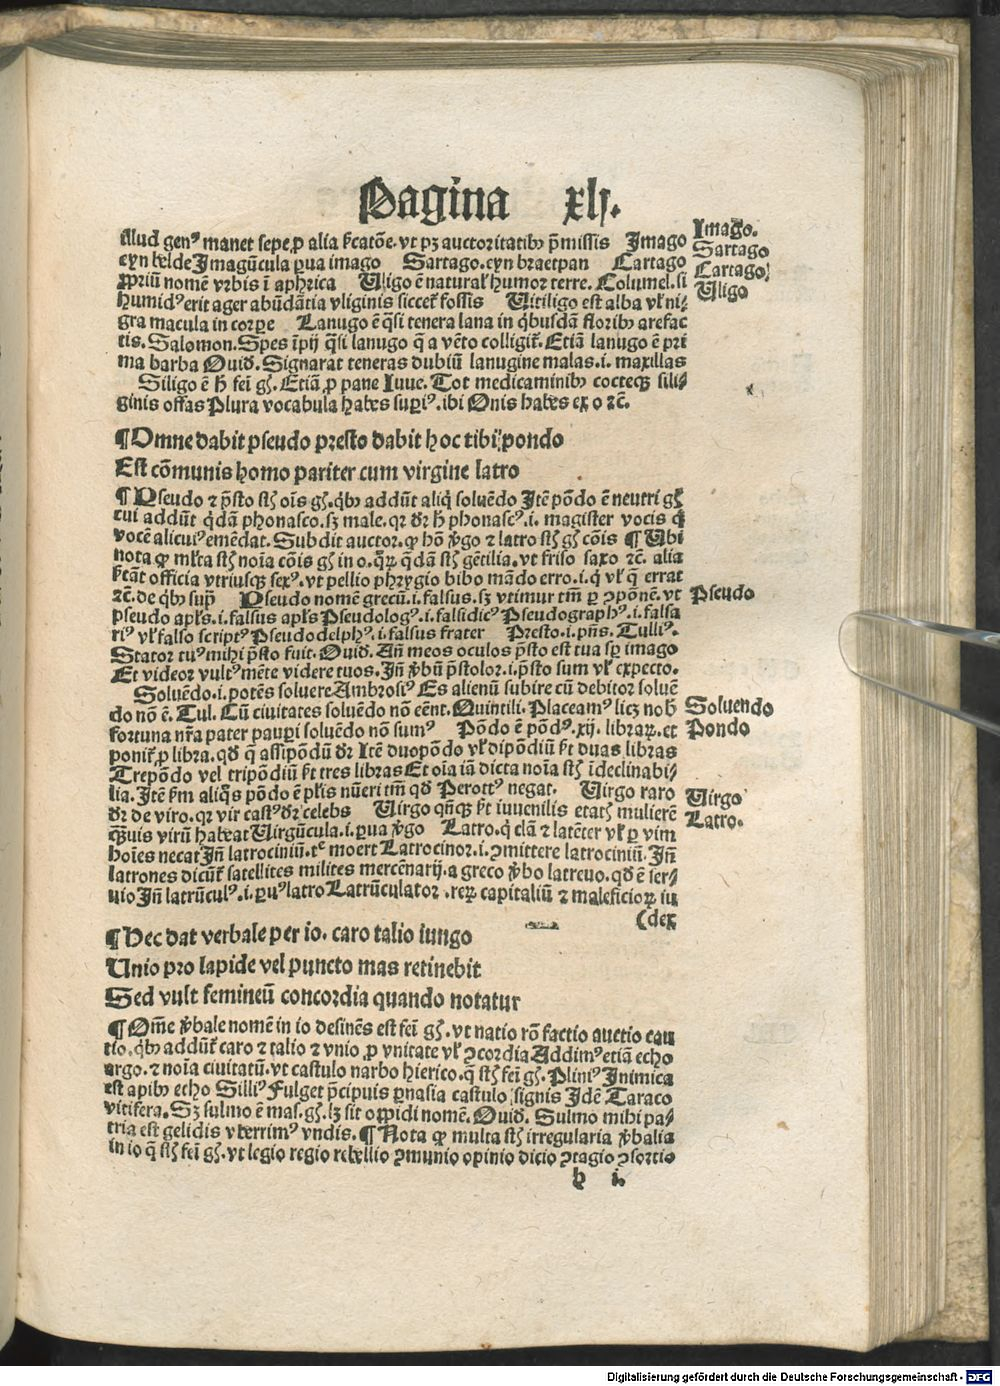 Pagina xlj.
Aliud genꝰ manet sepe ꝓ alia ſcatōe. vt pꝫ auctoritatibꝰ p̄missis Imago
Imago.
eyn belde Imagūcula ꝑua imago Sartago. eyn braetpan Cartago
Sartago
ꝓpriū nomē vrbis ī aphrica Vligo ē natural' humor terre. Columel. si
Cartago
humidꝰ erit ager abūdātia vliginis siccet' fossis Vitiligo est alba vl' ni-
Vligo
gra macula in corpe Lanugo ē q̄si tenera lana in q̄busdā floribꝰ arefac
tis. Salomon. Spes īpij q̄si lanugo q̄ a vēto colligit'. Etiā lanugo ē pri
ma barba Ouid. Signarat teneras dubiū lanugine malas. i. maxillas
Siligo ē h̄ fei gṅ. Etiā ꝓ pane Iuue. Tot medicaminibꝰ coctecꝫ sili-
ginis offas Plura vocabula habes supiꝰ. ibi Onis habes ex o ⁊c.
¶Omne dabit pseudo presto dabit hoc tibi pondo
Est cōmunis homo pariter cum virgine latro
¶Pseudo ⁊ p̄sto st̄ oīs gṅ. qbꝰ addūt aliq̄ soluēdo Itē pōdo ē neutri gṅ
cui addūt q̄dā phonasco. sꝫ male. qꝛ dr̄ h̄ phonascꝰ. i. magister vocis q̄
vocē alicuiꝰ emēdat. Subdit auctor. ꝙ hō v̄go ⁊ latro st̄ gṅ cōis ¶Vbi
nota ꝙ ml'ta st̄ noīa cōis gṅ in o. q̄ꝝ q̄dā st̄ gētilia. vt friso saxo ⁊c. alia
ſcāt officia vtriusqꝫ sexꝰ. vt pellio phrygio bibo mādo erro. i. q̄ vl' q̄ errat
⁊c. de qbꝰ supͣ Pseudo nomē grecū. i. falsus. sꝫ vtimur tm̄ ꝑ ꝯponē. vt
Pseudo
pseudo apl's. i. falsus apl's Pseudologꝰ. i. falsidicꝰ Pseudographꝰ. i. falsa
riꝰ vl' falso scriptꝰ Pseudodelphꝰ. i. falsus frater Presto. i. pn̄s. Tulliꝰ.
Stator tuꝰ mihi p̄sto fuit. Ouid. Añ meos oculos p̄sto est tua sꝑ imago
Et videor vultꝰ mēte videre tuos. Iñ v̄bū p̄stolor. i. p̄sto sum vl' expecto.
Soluēdo. i. potēs soluere Ambrosiꝰ Es alienū subire cū debitor soluē
do nō ē. Tul. Cū ciuitates soluēdo nō eēnt. Quintili. Placeamꝰ licꝫ nob̄
Soluendo
fortuna nr̄a pater paupi soluēdo nō sumꝰ Pōdo ē pōdꝰ. xij. libraꝝ. et
Pondo
ponit' ꝓ libra. qd̄ q̄ assipōdū dr̄ Itē duopōdo vl' dipōdiū ſt duas libras
Trepōdo vel tripōdiū ſt tres libras Et oīa iā dicta noīa st̄ īdeclinabi-
lia. Itē ſm aliq̄s pōdo ē pl'is nūeri tm̄ qd̄ Perottꝰ negat. Virgo raro
Virgo
dr̄ de viro. qꝛ vir castꝰ dr̄ celebs Virgo qn̄qꝫ ſt iuuenilis etatꝭ mulierē
q̄uis virū habeat Virgūcula. i. ꝑua v̄go Latro. q̄ clā ⁊ latēter vl' ꝑ vim
Latro.
hoīes necat Iñ latrociniū. te moert Latrocinor. i. ꝯmittere latrociniū. Iñ
latrones dicūt' satellites milites mercēnarij. a greco v̄bo latreuo. qd̄ ē ser-
uio Iñ latrūculꝰ. i. ꝑuꝰ latro Latrūculator. reꝝ capitaliū ⁊ maleficioꝝ iu
(dex
¶Hec dat verbale per io. caro talio iungo
Unio pro lapide vel puncto mas retinebit
Sed vult femineū concordia quando notatur
¶Om̄e v̄bale nomē in io desinēs est fei gṅ. vt natio rō factio auctio cau
tio. qbꝰ addūt' caro ⁊ talio ⁊ vnio ꝓ vnitate vl' ꝯcordia Addimꝰ etiā echo
argo. ⁊ noīa ciuitatū. vt castulo narbo hierico. q̄ st̄ fei gṅ. Pliniꝰ Inimica
est apibꝰ echo Silliꝰ Fulget p̄cipuis ꝑnasia castulo signis Idē Taraco
vitifera. Sꝫ sulmo ē mas. gṅ. lꝫ sit oppidi nomē. Ouid. Sulmo mihi pa-
tria est gelidis vberrimꝰ vndis. ¶Nota ꝙ multa st̄ irregularia v̄balia
in io q̄ st̄ fei gṅ. vt legio regio rebellio ꝯmunio opinio dicio ꝯtagio ꝯsortio
h i.
Digitalisierung gefördert durch die Deutsche Forschungsgemeinschaft - DFG